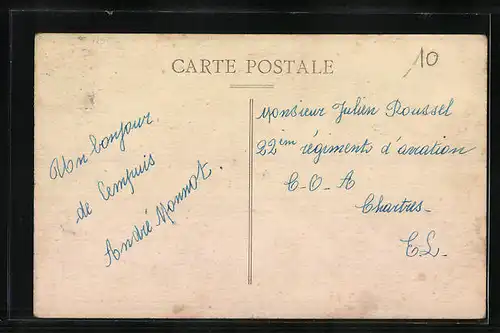 CARTE POSTALE
10
Un bonjour
de Cempuis
André Monnot.
Monsieur Julien Roussel
22èm régiments d'aviation
C-O-A
Chartres-
E L-